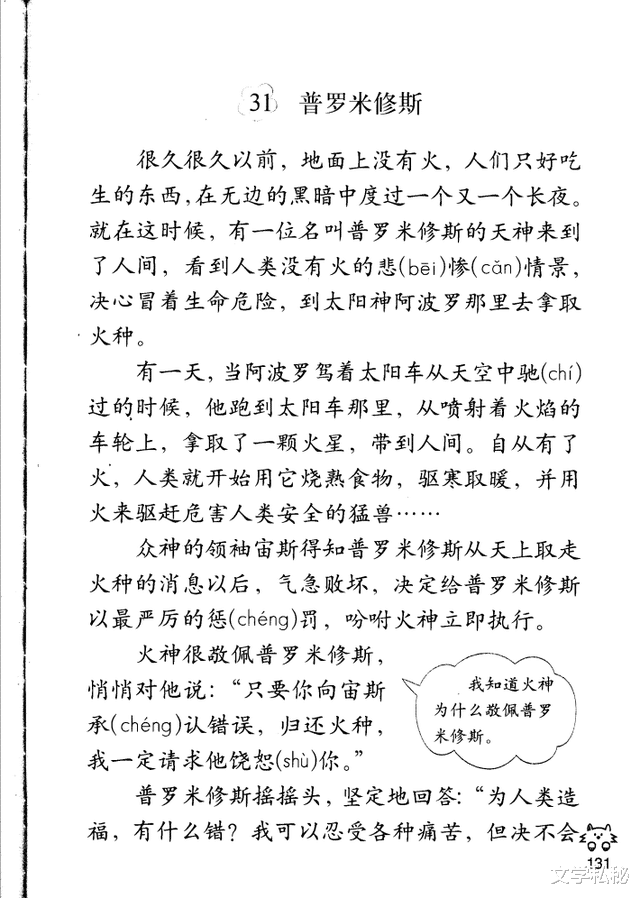 31 普罗米修斯
很久很久以前，地面上没有火，人们只好吃
生的东西，在无边的黑暗中度过一个又一个长夜。
就在这时候，有一位名叫普罗米修斯的天神来到
了人间，看到人类没有火的悲(bēi)惨(cǎn)情景，
决心冒着生命危险，到太阳神阿波罗那里去拿取
火种。
有一天，当阿波罗驾着太阳车从天空中驰(chí)
过的时候，他跑到太阳车那里，从喷射着火焰的
车轮上，拿取了一颗火星，带到人间。自从有了
火，人类就开始用它烧熟食物，驱寒取暖，并用
火来驱赶危害人类安全的猛兽……
众神的领袖宙斯得知普罗米修斯从天上取走
火种的消息以后，气急败坏，决定给普罗米修斯
以最严厉的惩(chéng)罚，吩咐火神立即执行。
火神很敬佩普罗米修斯，
悄悄对他说：“只要你向宙斯
承(chéng)认错误，归还火种，
我一定请求他饶恕(shù)你。”
我知道火神
为什么敬佩普罗
米修斯。
普罗米修斯摇摇头，坚定地回答：“为人类造
福，有什么错？我可以忍受各种痛苦，但决不会
131
文学私秘